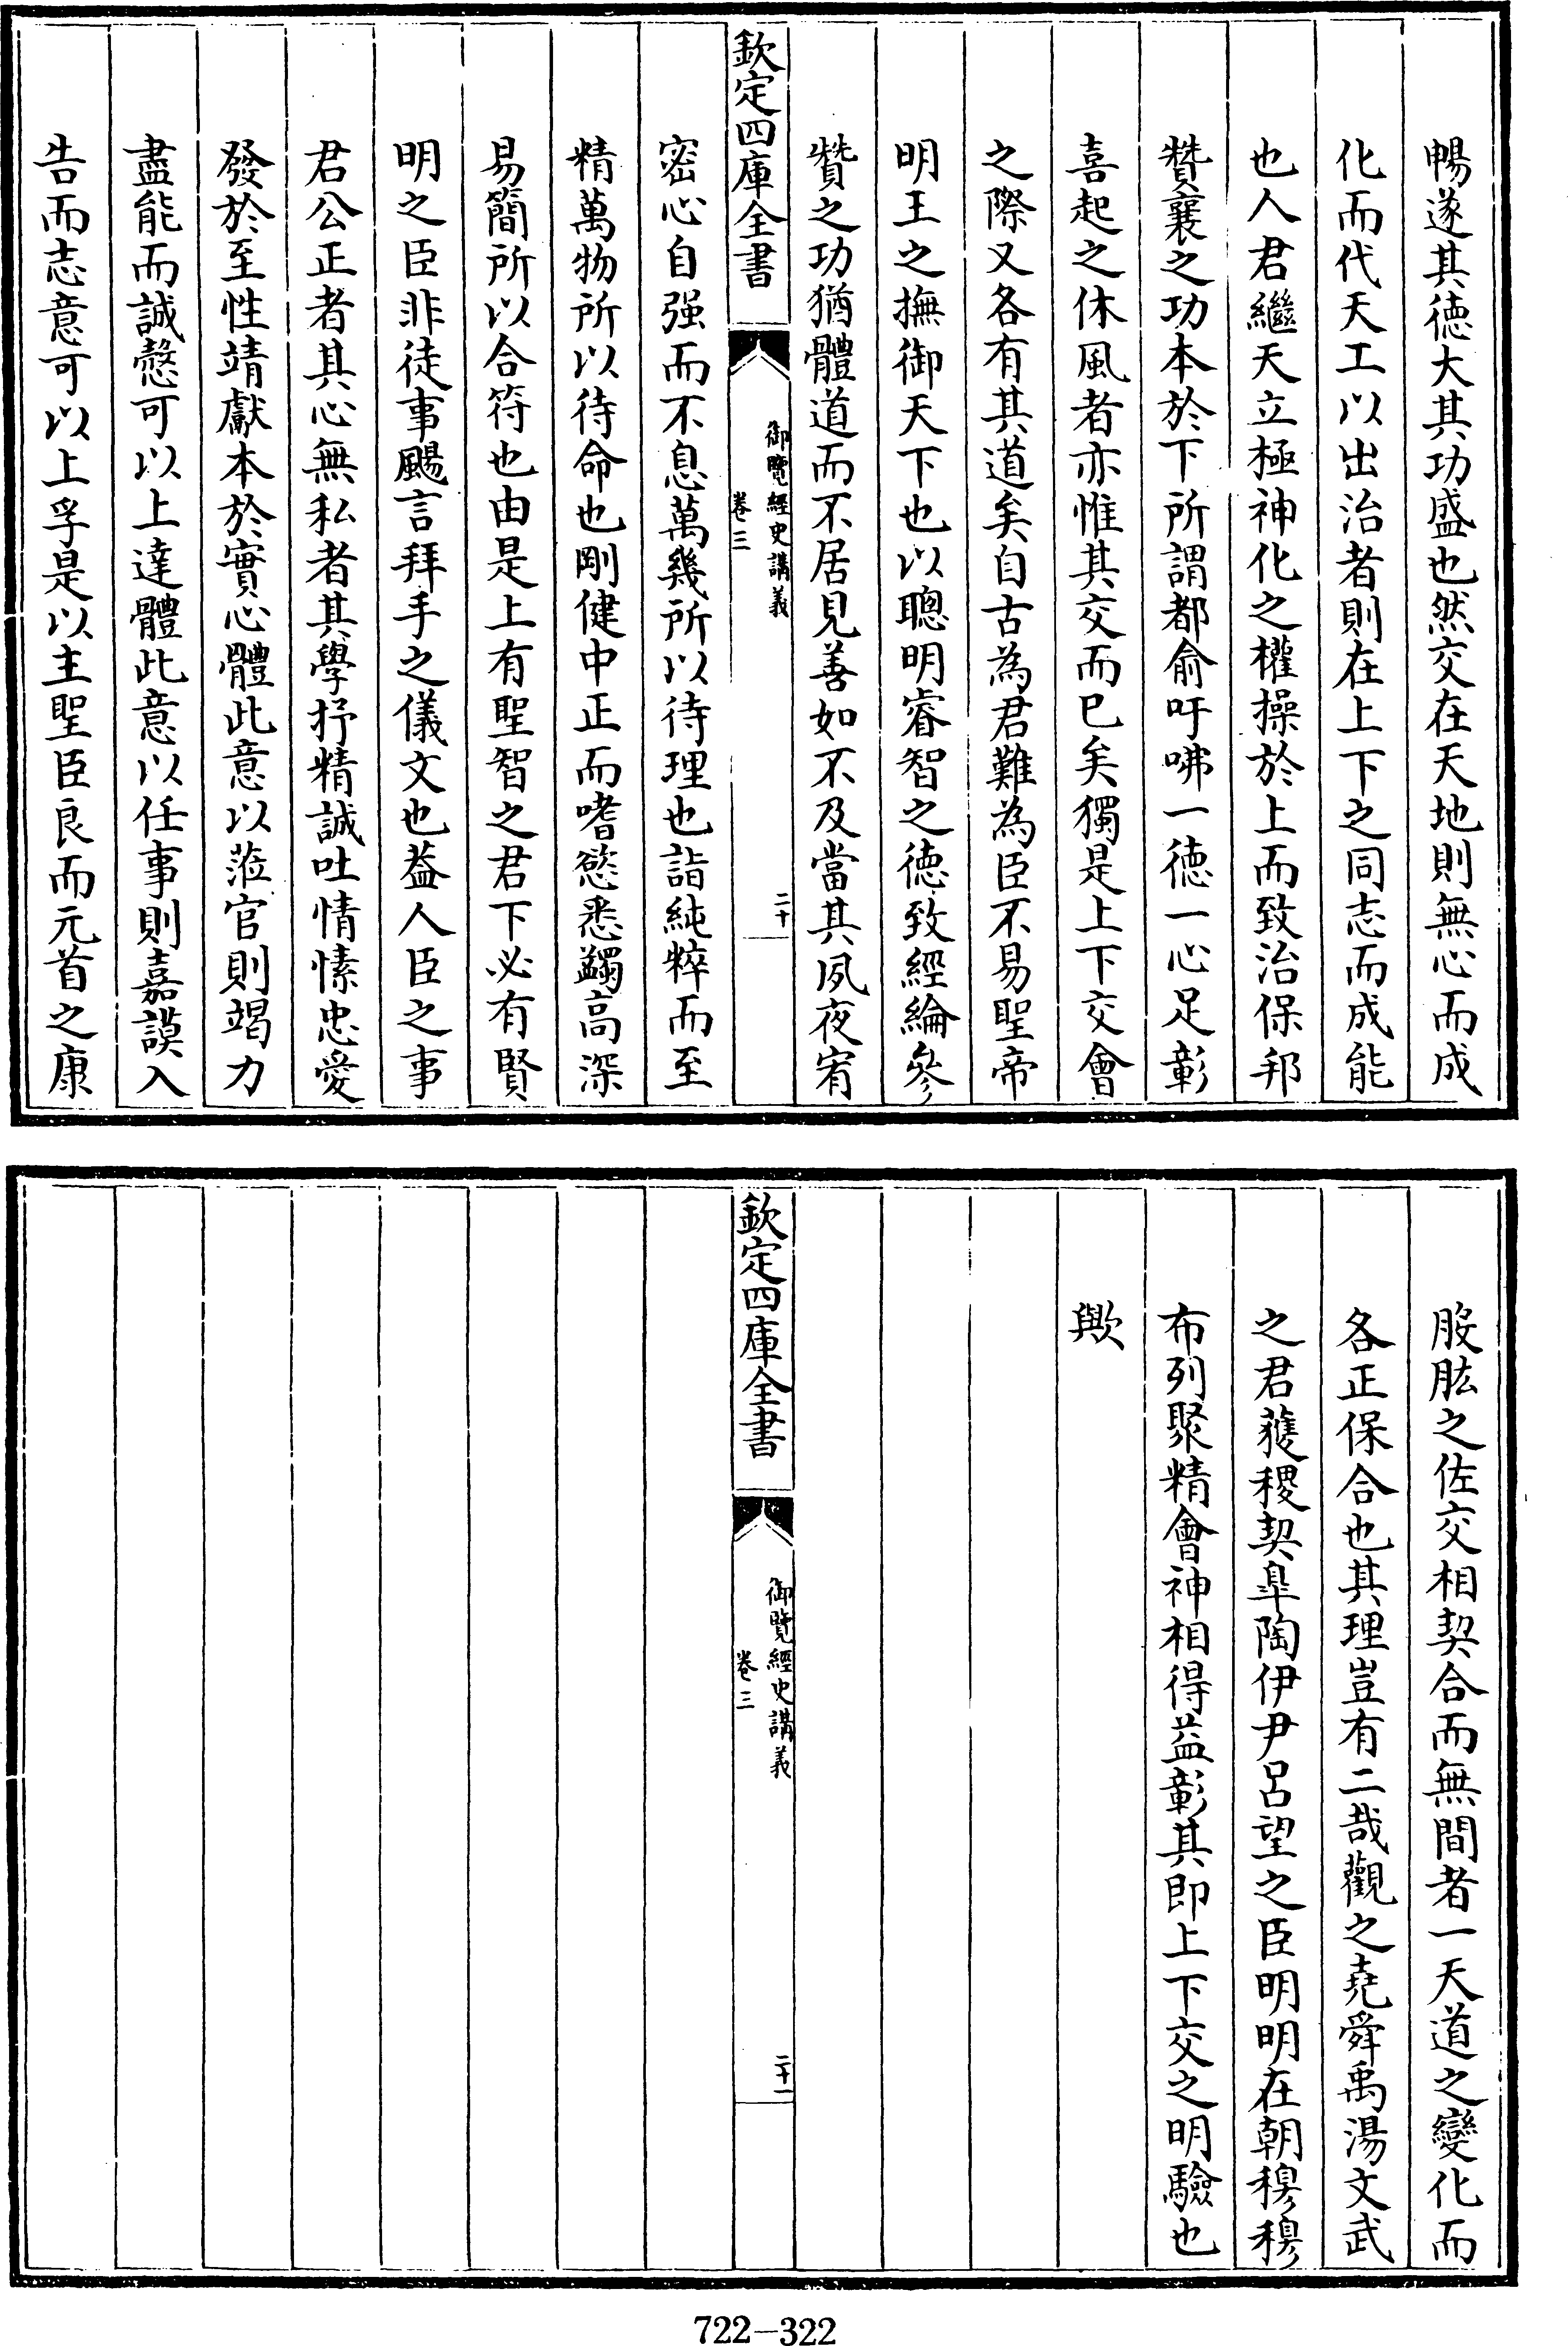 暢遂其徳大其功盛也然交在天地則無心而成
化而代天工以出治者則在上下之同志而成能
也人君繼天立極神化之權操於上而致治保邦
贊襄之功本於下所謂都俞吁咈一徳一心足彰
喜起之休風者亦惟其交而已矣獨是上下交會
之際又各有其道矣自古為君難為臣不易聖帝
明王之撫御天下也以聰明睿智之徳致經綸參
贊之功猶體道而不居見善如不及當其夙夜宥
欽定四庫全書
御覽經史講義
卷三
二十
密心自强而不息萬幾所以待理也詣純粹而至
精萬物所以待命也剛健中正而嗜慾悉蠲高深
易簡所以合符也由是上有聖智之君下必有賢
明之臣非徒事颺言拜手之儀文也葢人臣之事
君公正者其心無私者其學抒精誠吐情愫忠愛
發於至性靖獻本於實心體此意以涖官則竭力
盡能而誠慤可以上達體此意以任事則嘉謨入
告而志意可以上孚是以主聖臣良而元首之康
股肱之佐交相契合而無間者一天道之變化而
各正保合也其理豈有二哉觀之堯舜禹湯文武
之君蒦稷契臯陶伊尹呂望之臣明明在朝穆穆
布列聚精會神相得益彰其即上下交之明驗也
歟
欽定四庫全書
御覽經史講義
卷三
二十一
722-322